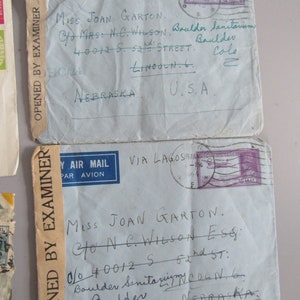 OPENED BY EXAMINER
MISS JOAN GARTON.
C/o MASS. H.C. WILSON,
40012 S. 52nd STREET
LINCOLN. 6
NEBRASKA
U.S.A
Boulder Sanitarium
Boulder
Colo
OPENED BY EXAMINER
BY AIR MAIL
PAR AVION
VIA LAGOS
MISS JOAN GARTON.
C/o N C. WILSON ESQ:
C/o 40012 S 52nd ST:
Boulder Sanitarium
LINCOLN 6
Boulder
NEBRASKA